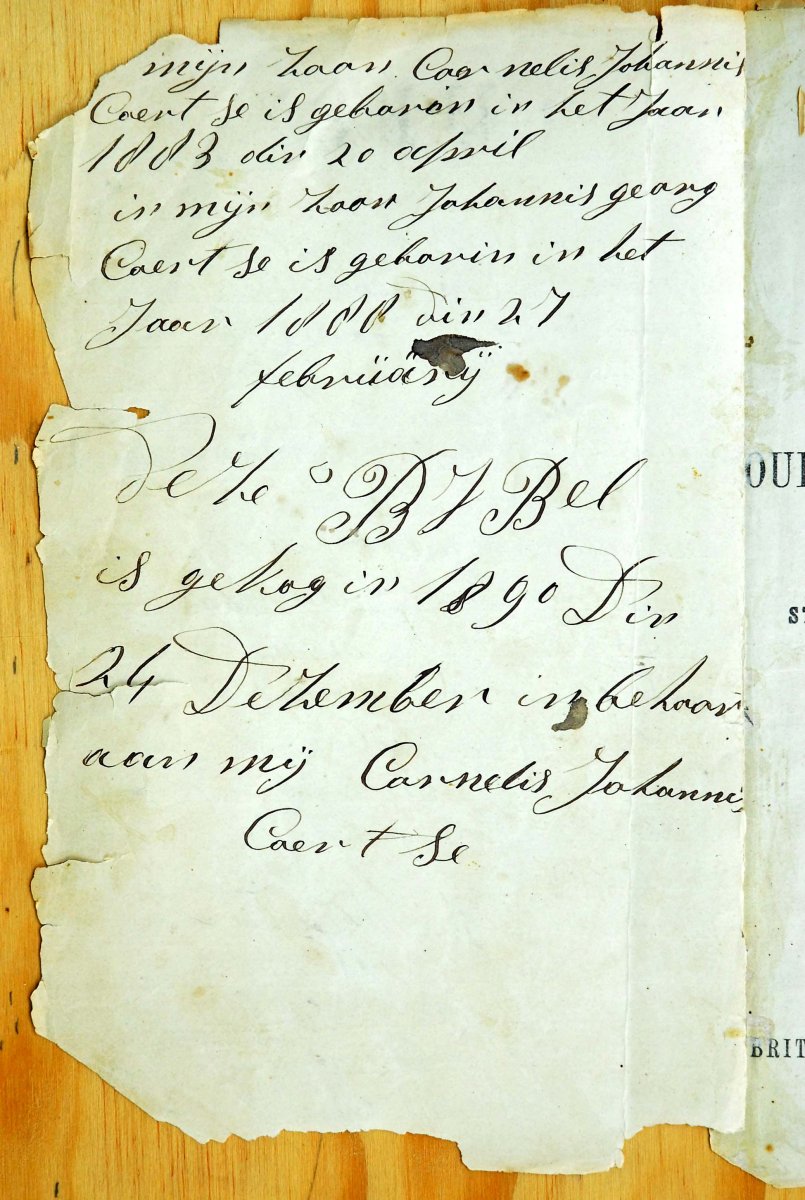 mijn zoon Coornelis Johannis
Coert se is geborin in het Jaar
1883 din 20 april
in mijn zoon Johannis georg
Coert se is geborin in het
Jaar 1888 din 27
februarij
deze BYBel
is gekog in 1890 Din
24 Dezember in behoor
aan mij Cornelis Johannis
Coert se
OU
S
BRIT